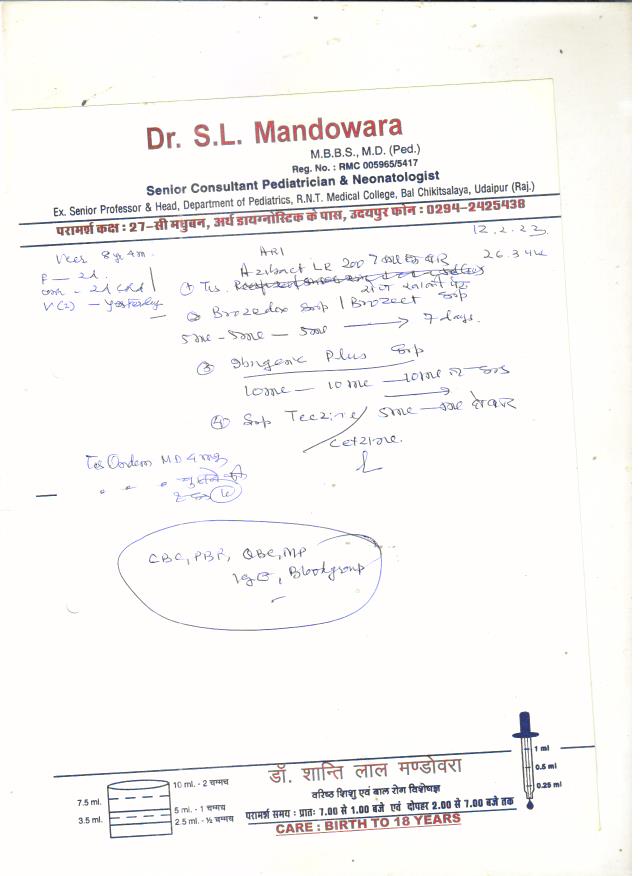 Dr. S.L. Mandowara
M.B.B.S., M.D. (Ped.)
Reg. No. : RMC 005965/5417
Senior Consultant Pediatrician & Neonatologist
Ex. Senior Professor & Head, Department of Pediatrics, R.N.T. Medical College, Bal Chikitsalaya, Udaipur (Raj.)
परामर्श कक्ष : 27-सी मधुबन, अर्थ डायग्नोस्टिक के पास, उदयपुर फोन : 0294-2425438
12.2.23
Veer 8 yr 4 m.
ARI
26.3
F — 2d.
- 2d cold
V (2) - yesterday
① Tab. Azibact LR 200
② Brozedex Syp / Brozeet Syp
5ml - 5ml - 5ml → 7 days.
③ Ibugenic Plus Syp
10ml - 10ml - 10ml
④ Syp Teczine / 5ml - 5ml
Cetzine.
Tab Ondem MD 4 mg
CBC, PBF, QBC, MP
IgE, Bloodgroup
10 ml. - 2 चम्मच
7.5 ml.
5 ml. - 1 चम्मच
3.5 ml.
2.5 ml. - ½ चम्मच
डॉ. शान्ति लाल मण्डोवरा
वरिष्ठ शिशु एवं बाल रोग विशेषज्ञ
परामर्श समय : प्रातः 7.00 से 1.00 बजे एवं दोपहर 2.00 से 7.00 बजे तक
CARE : BIRTH TO 18 YEARS
1 ml
0.5 ml
0.25 ml